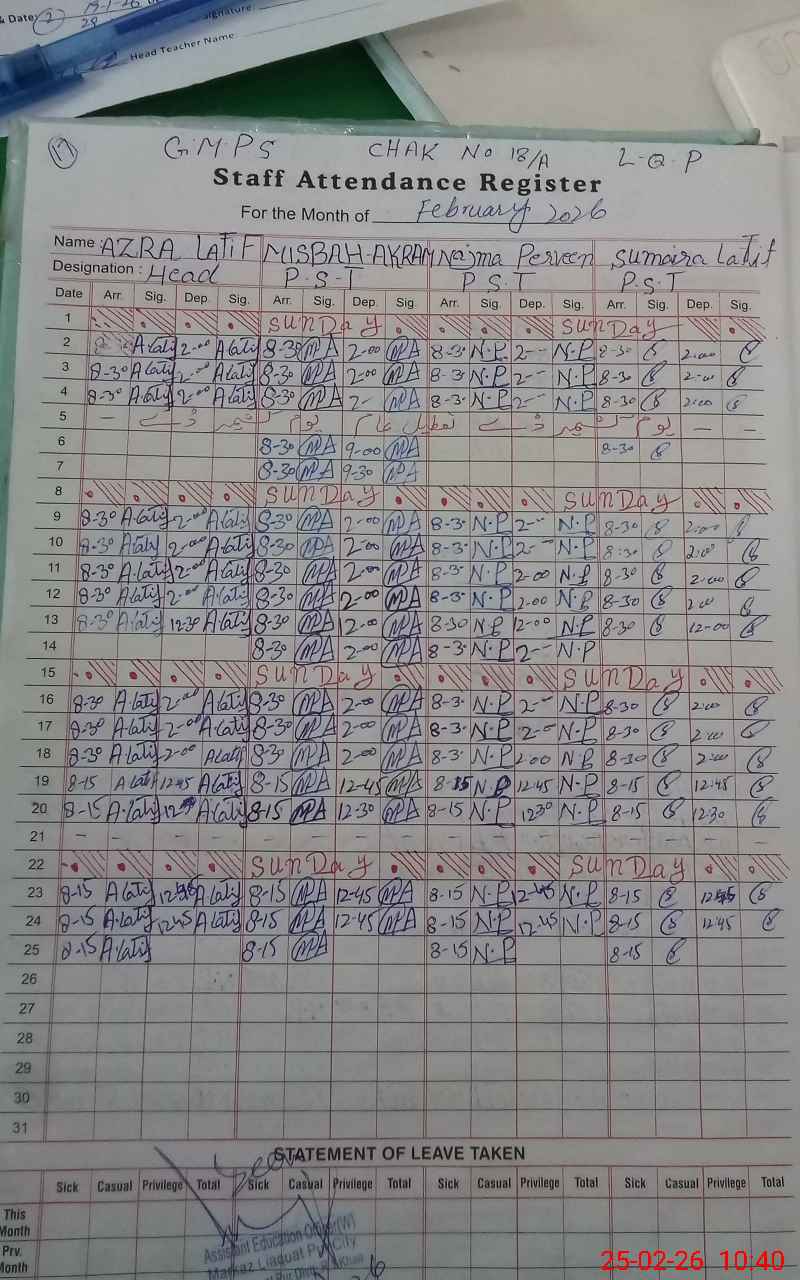 & Date: 2
Signature:
Head Teacher Name
17 G.M.P.S CHAK No 18/A L-Q-P
Staff Attendance Register
For the Month of February 2026
Name : AZRA LATIF MISBAH-AKRAM Najma Perveen Sumaira Latif
Designation : Head P.S.T P S.T P.S.T
Date Arr. Sig. Dep. Sig. Arr. Sig. Dep. Sig. Arr. Sig. Dep. Sig. Arr. Sig. Dep. Sig.
1 SUNDAY SUNDAY
2 A.Latif 2-00 A.Latif 8-30 MA 2-00 MA 8-3 N.P 2-- N.P 8-30 2:00
3 8-30 A.Latif 2-00 A.Latif 8-30 MA 2-00 MA 8-3 N.P 2-- N.P 8-30 2-00
4 8-30 A.Latif 2-00 A.Latif 8-30 MA 2- MA 8-3 N.P 2-- N.P 8-30 2:00
5 - یوم کشمیر ڈے عام تعطیل یوم کشمیر ڈے - -
6 8-30 MA 9-00 MA 8-30
7 8-30 MA 9-30 MA
8 SUNDAY SUNDAY
9 8-30 A.Latif 2-00 A.Latif 8-30 MA 2-00 MA 8-3 N.P 2-- N.P 8-30 2:00
10 8-30 A.Latif 2-00 A.Latif 8-30 MA 2-00 MA 8-3 N.P 2-- N.P 8:30 2:00
11 8-30 A.Latif 2-00 A.Latif 8-30 MA 2-00 MA 8-3 N.P 2-00 N.P 8-30 2-00
12 8-30 A.Latif 2-00 A.Latif 8-30 MA 2-00 MA 8-3 N.P 2-00 N.P 8-30 2.00
13 8-30 A.Latif 12-30 A.Latif 8-30 MA 12-00 MA 8-30 N.P 12-00 N.P 8-30 12-00
14 8-30 MA 2-00 MA 8-3 N.P 2-- N.P
15 SUNDAY SUNDAY
16 8-30 A.Latif 2-00 A.Latif 8-30 MA 2-00 MA 8-3 N.P 2-- N.P 8-30 2:00
17 8-30 A.Latif 2-00 A.Latif 8-30 MA 2-00 MA 8-3 N.P 2-- N.P 8-30 2:00
18 8-30 A.Latif 2-00 A.Latif 8-30 MA 2-00 MA 8-3 N.P 2.00 N.P 8-30 2:00
19 8-15 A.Latif 12-45 A.Latif 8-15 MA 12-45 MA 8-15 N.P 12-45 N.P 8-15 12:45
20 8-15 A.Latif A.Latif 8-15 MA 12-30 MA 8-15 N.P 1230 N.P 8-15 12-30
21 - - - - - - - - - - - - - - - -
22 SUNDAY SUNDAY
23 8-15 A.Latif 12-45 A.Latif 8-15 MA 12-45 MA 8-15 N.P 12-45 N.P 8-15 12-45
24 8-15 A.Latif 12-45 A.Latif 8-15 MA 12-45 MA 8-15 N.P 12-45 N.P 8-15 12:45
25 8-15 A.Latif 8-15 MA 8-15 N.P 8-15
26
27
28
29
30
31
STATEMENT OF LEAVE TAKEN
Sick Casual Privilege Total Sick Casual Privilege Total Sick Casual Privilege Total Sick Casual Privilege Total
This Month
Prv. Month
Assistant Education Officer(W)
Markaz Liaquat Pur City
25-02-26 10:40